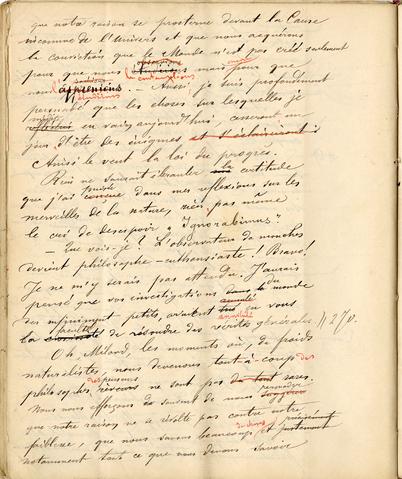 que notre raison se prosterne devant la Cause
inconnue de l'Univers et que nous acquérons
la conviction que le Monde n'est pas créé seulement
pour que nous mais pour que
nous l' apprenions. Aussi, je suis profondément
persuadé que les choses sur lesquelles je
en vain aujourd'hui, cesseront un
jour d'être des énigmes et s'éclairciront :
Ainsi le veut la loi du progrès.
Rien ne saurait ébranler la certitude
que j'ai puisée conçue dans mes reflexions sur les
merveilles de la nature, rien, pas même
le cri de desespoir "Ignorabimus"
— Que vois-je ! L'observateur de mouches
devient philosophe - enthousiaste ! Bravo !
Je ne m'y serais pas attendu. J'aurais
pensé que vos investigations dans le monde du
des infiniment petits, avaient annihilé en vous
la faculté de résoudre des vérités générales. // 270.
Oh, Milord, les moments où, de froids
naturalistes, nous devenons tout-à-coup des
philosophes, ne sont pas du tout rares.
Nous nous efforçons de suivent de nous persuader
que notre raison ne se révolte pas contre notre
faiblesse, que nous savons beaucoup et justement
notamment tout ce que nous devons savoir